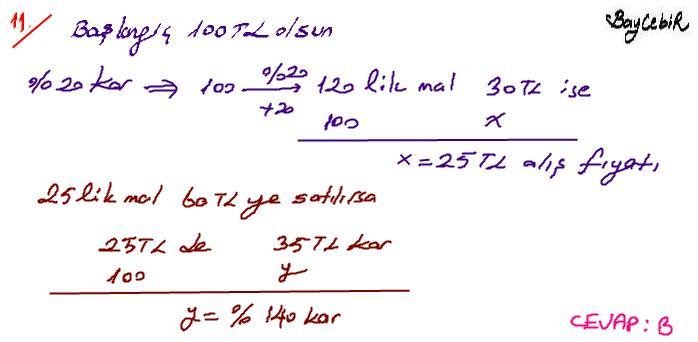 11/ Başlangıç 100 TL olsun
BayCebir
%20 kar ⇒ 100 %20→ +20 120 lik mal 30 TL ise
100 x
x = 25 TL alış fiyatı
25 lik mal 60 TL ye satılırsa
25 TL de 35 TL kar
100 y
y = % 140 kar
CEVAP: B